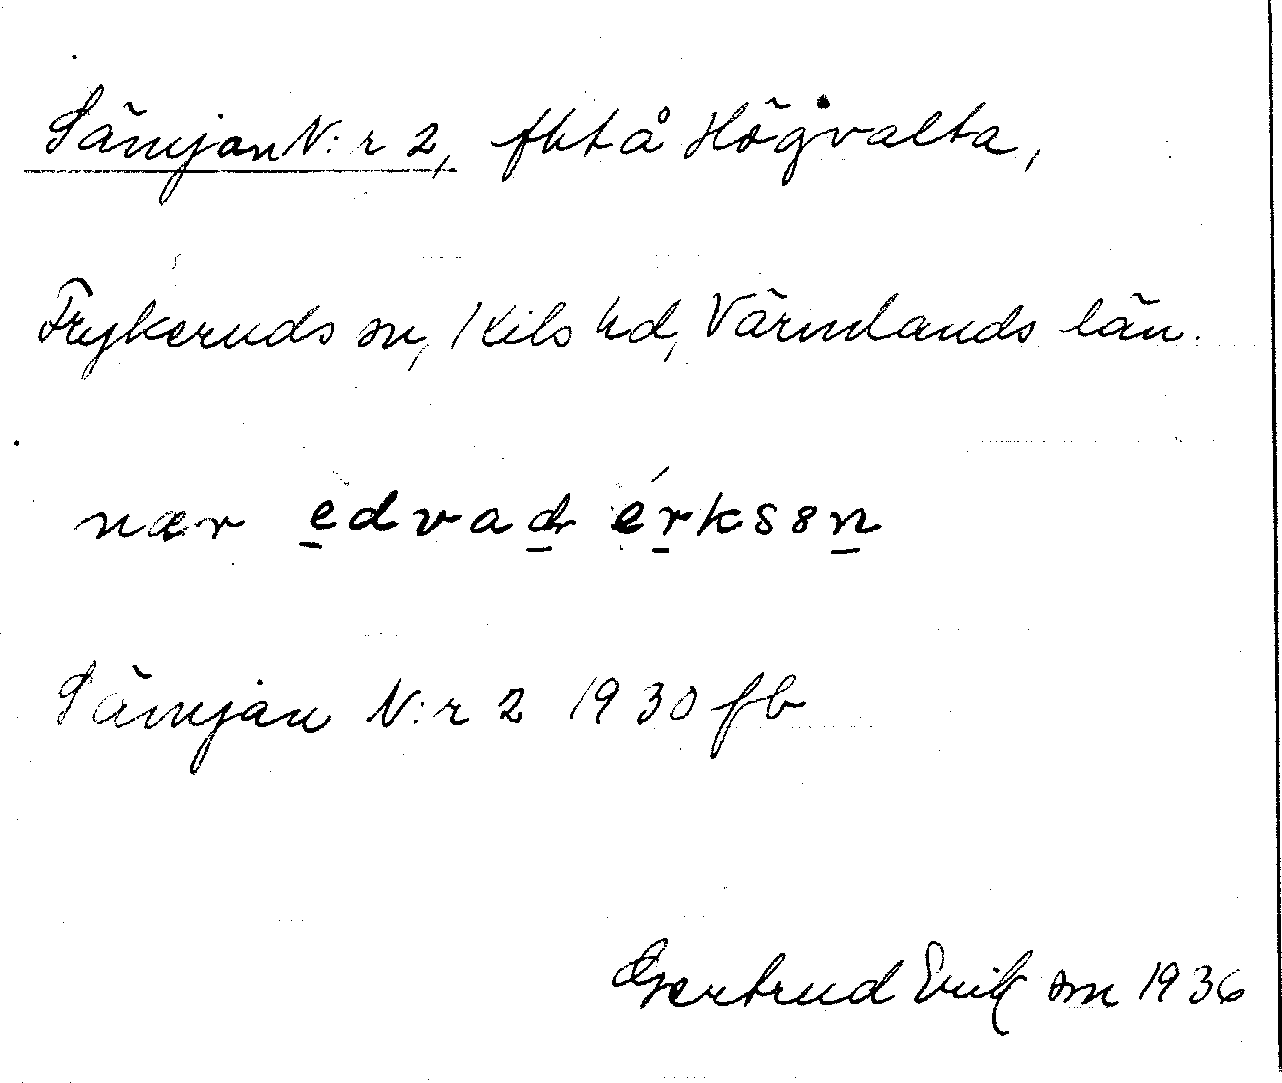 Sämjan N:r 2, fht å Högvalta,
Frykeruds sn, Kils hd, Värmlands län.
nær edvad érksøn
Sämjan N:r 2 1930 fb
Gertrud Erikson 1936